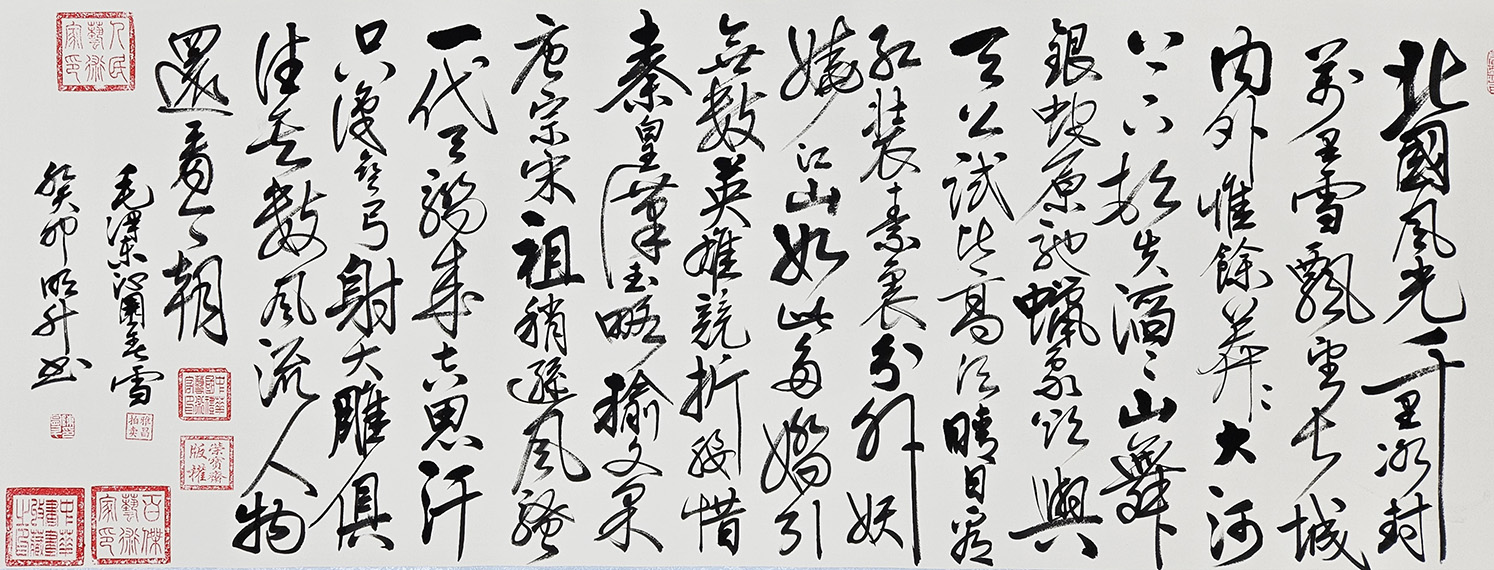 北國風光千里冰封
萬里雪飄望長城
內外惟餘莽〻大河
上下頓失滔〻山舞
銀蛇原馳蠟象欲與
天公試比高須晴日看
紅裝素裹分外妖
嬈江山如此多嬌引
無數英雄競折腰惜
秦皇漢武略輸文采
唐宗宋祖稍遜風騷
一代天驕成吉思汗
只識彎弓射大雕俱
往矣數風流人物
還看今朝
毛澤東沁園春雪
癸卯明升書
人民藝術家印
雅昌拍卖
榮寶齋版權
百傑藝術家印